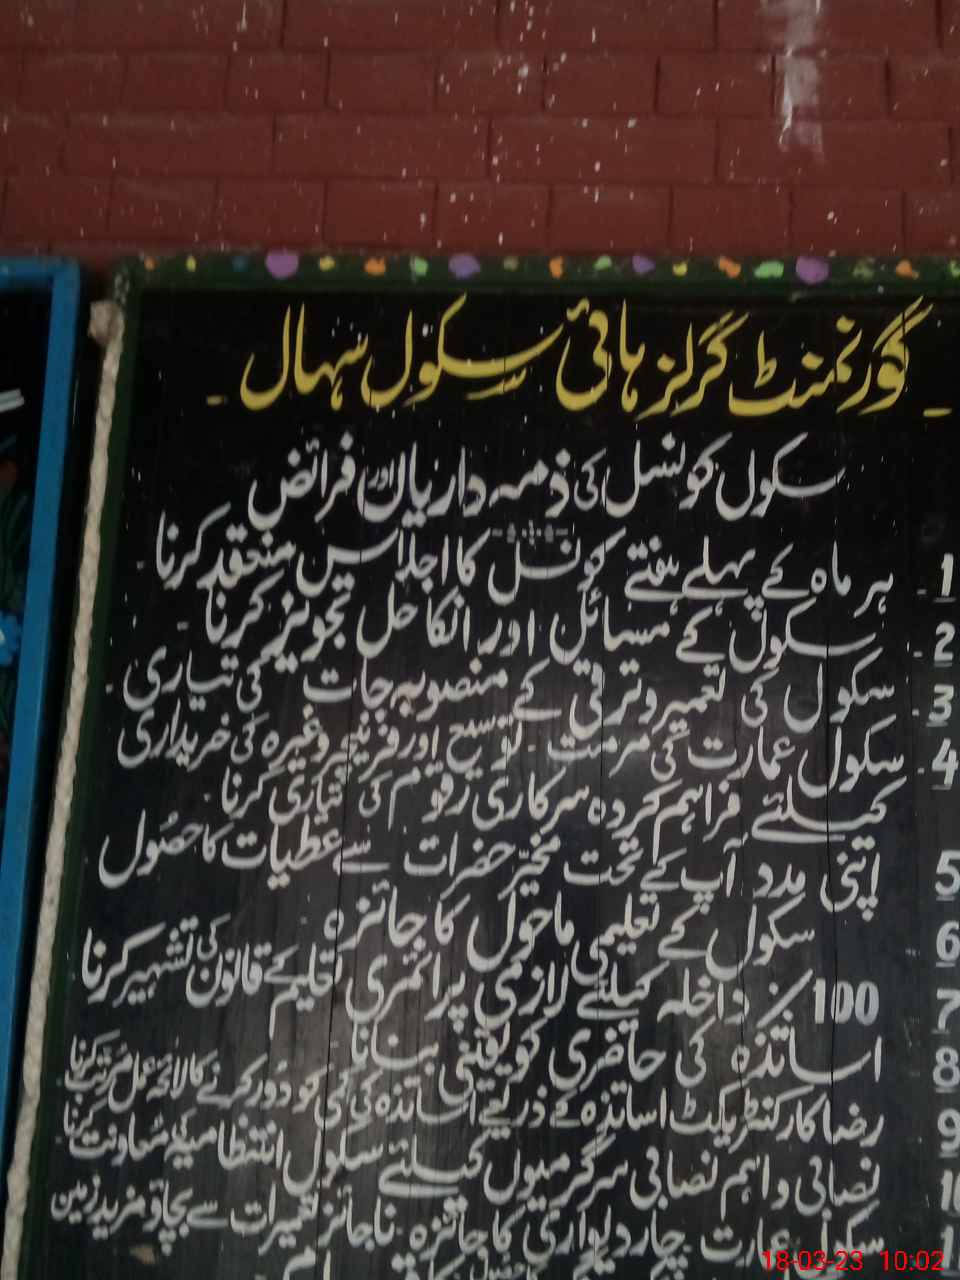 گورنمنٹ گرلز ہائی سکول سہال
سکول کونسل کی ذمہ داریاں اور فرائض
1 ہر ماہ کے پہلے ہفتے کونسل کا اجلاس منعقد کرنا
2 سکول کے مسائل اور انکا حل تجویز کرنا
3 سکول کی تعمیر و ترقی کے منصوبہ جات کی تیاری
4 سکول عمارت کی مرمت۔ توسیع اور فرنیچر وغیرہ کی خریداری
کیلئے فراہم کردہ سرکاری رقوم کی تیاری کرنا
5 اپنی مدد آپ کے تحت مخیر حضرات سے عطیات کا حصُول
6 سکول کے تعلیمی ماحول کا جائزہ
7 100٪ داخلہ کیلئے لازمی پرائمری تعلیم کے قانون کی تشہیر کرنا
8 اساتذہ کی حاضری کو یقینی بنانا
9 رضا کار کنٹریکٹ اساتذہ کے ذریعے اساتذہ کی کمی کو دُور کرنے کا لائحہ عمل مُرتب کرنا
نصابی و اہم نصابی سرگرمیوں کیلئے سکول انتظامیہ کی مُعاونت کرنا
سکول عمارت چار دیواری کا جائزہ ناجائز تعمیرات سے بچاؤ مزید زمین
18-03-23 10:02